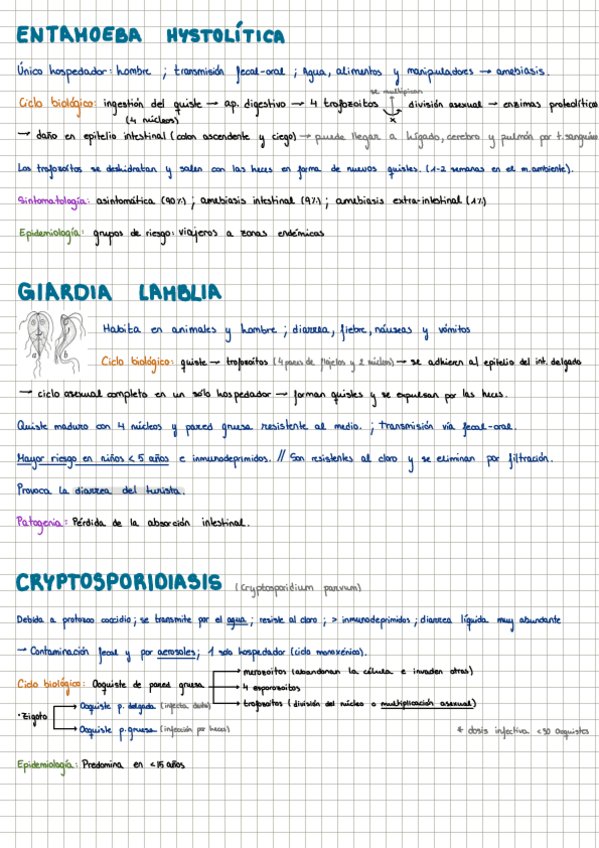 ENTAMOEBA HYSTOLÍTICA
Único hospedador: hombre ; transmisión fecal-oral ; Agua, alimentos y manipuladores → amebiasis.
se multiplican
Ciclo biológico: ingestión del quiste → ap. digestivo → 4 trofozoitos división asexual → enzimas proteolítica
(4 núcleos) x
→ daño en epitelio intestinal (colon ascendente y ciego) → puede llegar a hígado, cerebro y pulmón por t. sanguíneo
Los trofozoitos se deshidratan y salen con las heces en forma de nuevos quistes. (1-2 semanas en el m.ambiente).
Sintomatología: asintomática (90%) ; amebiasis intestinal (9%) ; amebiasis extra-intestinal (1%)
Epidemiología: grupos de riesgo: viajeros a zonas endémicas
GIARDIA LAMBLIA
Habita en animales y hombre ; diarrea, fiebre, náuseas y vómitos
a b
Ciclo biológico: quiste → trofozoitos (4 pares de flagelos y 2 núcleos) → se adhieren al epitelio del int. delgado
→ ciclo asexual completo en un sólo hospedador → forman quistes y se expulsan por las heces.
Quiste maduro con 4 núcleos y pared gruesa resistente al medio. ; transmisión vía fecal-oral.
Mayor riesgo en niños < 5 años e inmunodeprimidos. // Son resistentes al cloro y se eliminan por filtración.
Provoca la diarrea del turista.
Patogenia: Pérdida de la absorción intestinal.
CRYPTOSPORIDIASIS (Cryptosporidium parvum)
Debida a protozoo coccidio ; se transmite por el agua ; resiste al cloro ; > inmunodeprimidos ; diarrea líquida muy abundante
→ Contaminación fecal y por aerosoles ; 1 solo hospedador (ciclo monoxénico).
merozoitos (abandonan la célula e invaden otras)
Ciclo biológico: Ooquiste de pared gruesa 4 esporozoitos
trofozoitos (división del núcleo o multiplicación asexual)
· Zigoto Ooquiste p. delgada (infecta
Ooquiste p. gruesa (infección por heces) * dosis infectiva <30 Ooquistes
Epidemiología: Predomina en <15 años